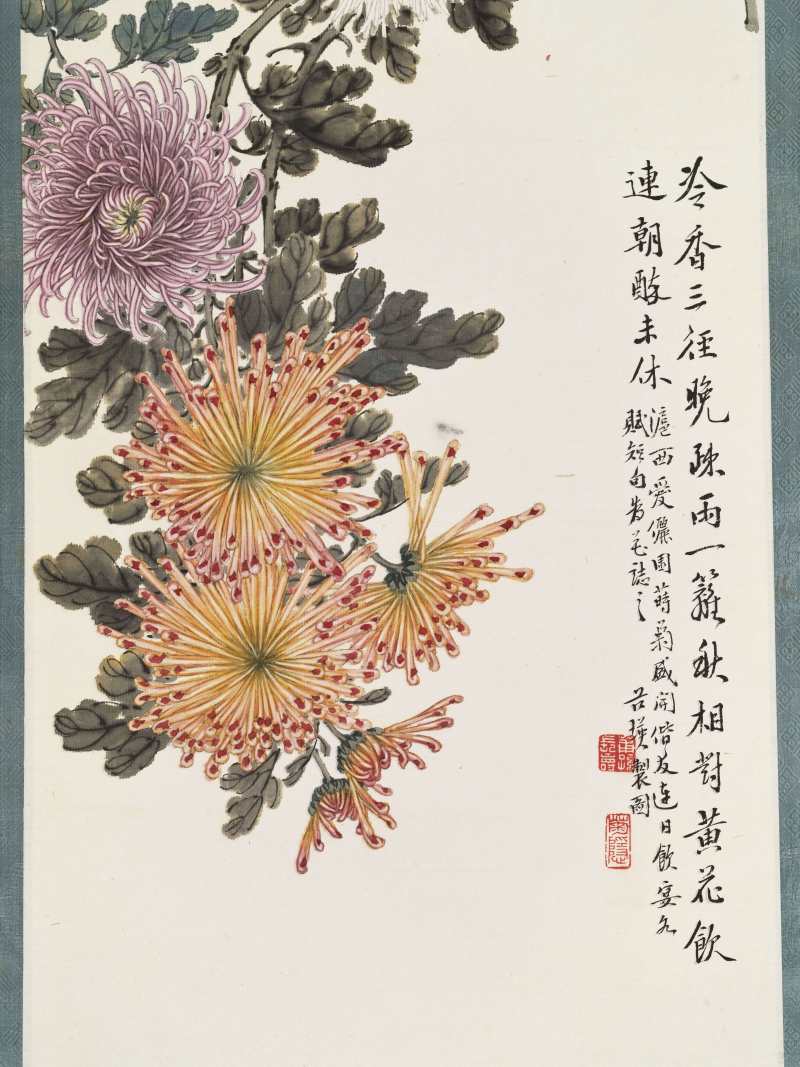 冷香三徑晚疎雨一籬秋相對黃花飲
連朝醉未休
滬西愛儷園蒔菊盛開偕友連日飲宴各
賦短句為花誌之
製圖
菊隱